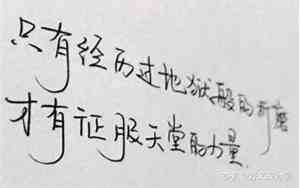 只有经历过地狱般的折磨
才有征服天堂的力量